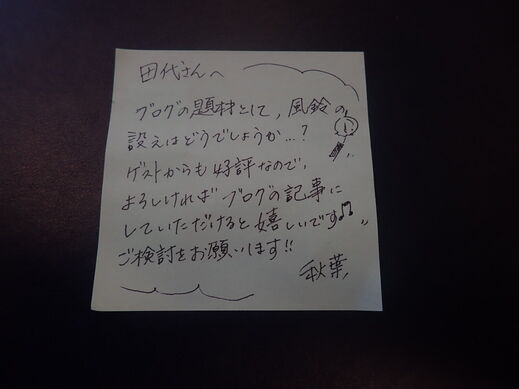 田代さんへ
ブログの題材として、風鈴の
設えはどうでしょうか…?
ゲストからも好評なので、
よろしければブログの記事に
していただけると嬉しいです♫
ご検討をお願いします!!
秋葉